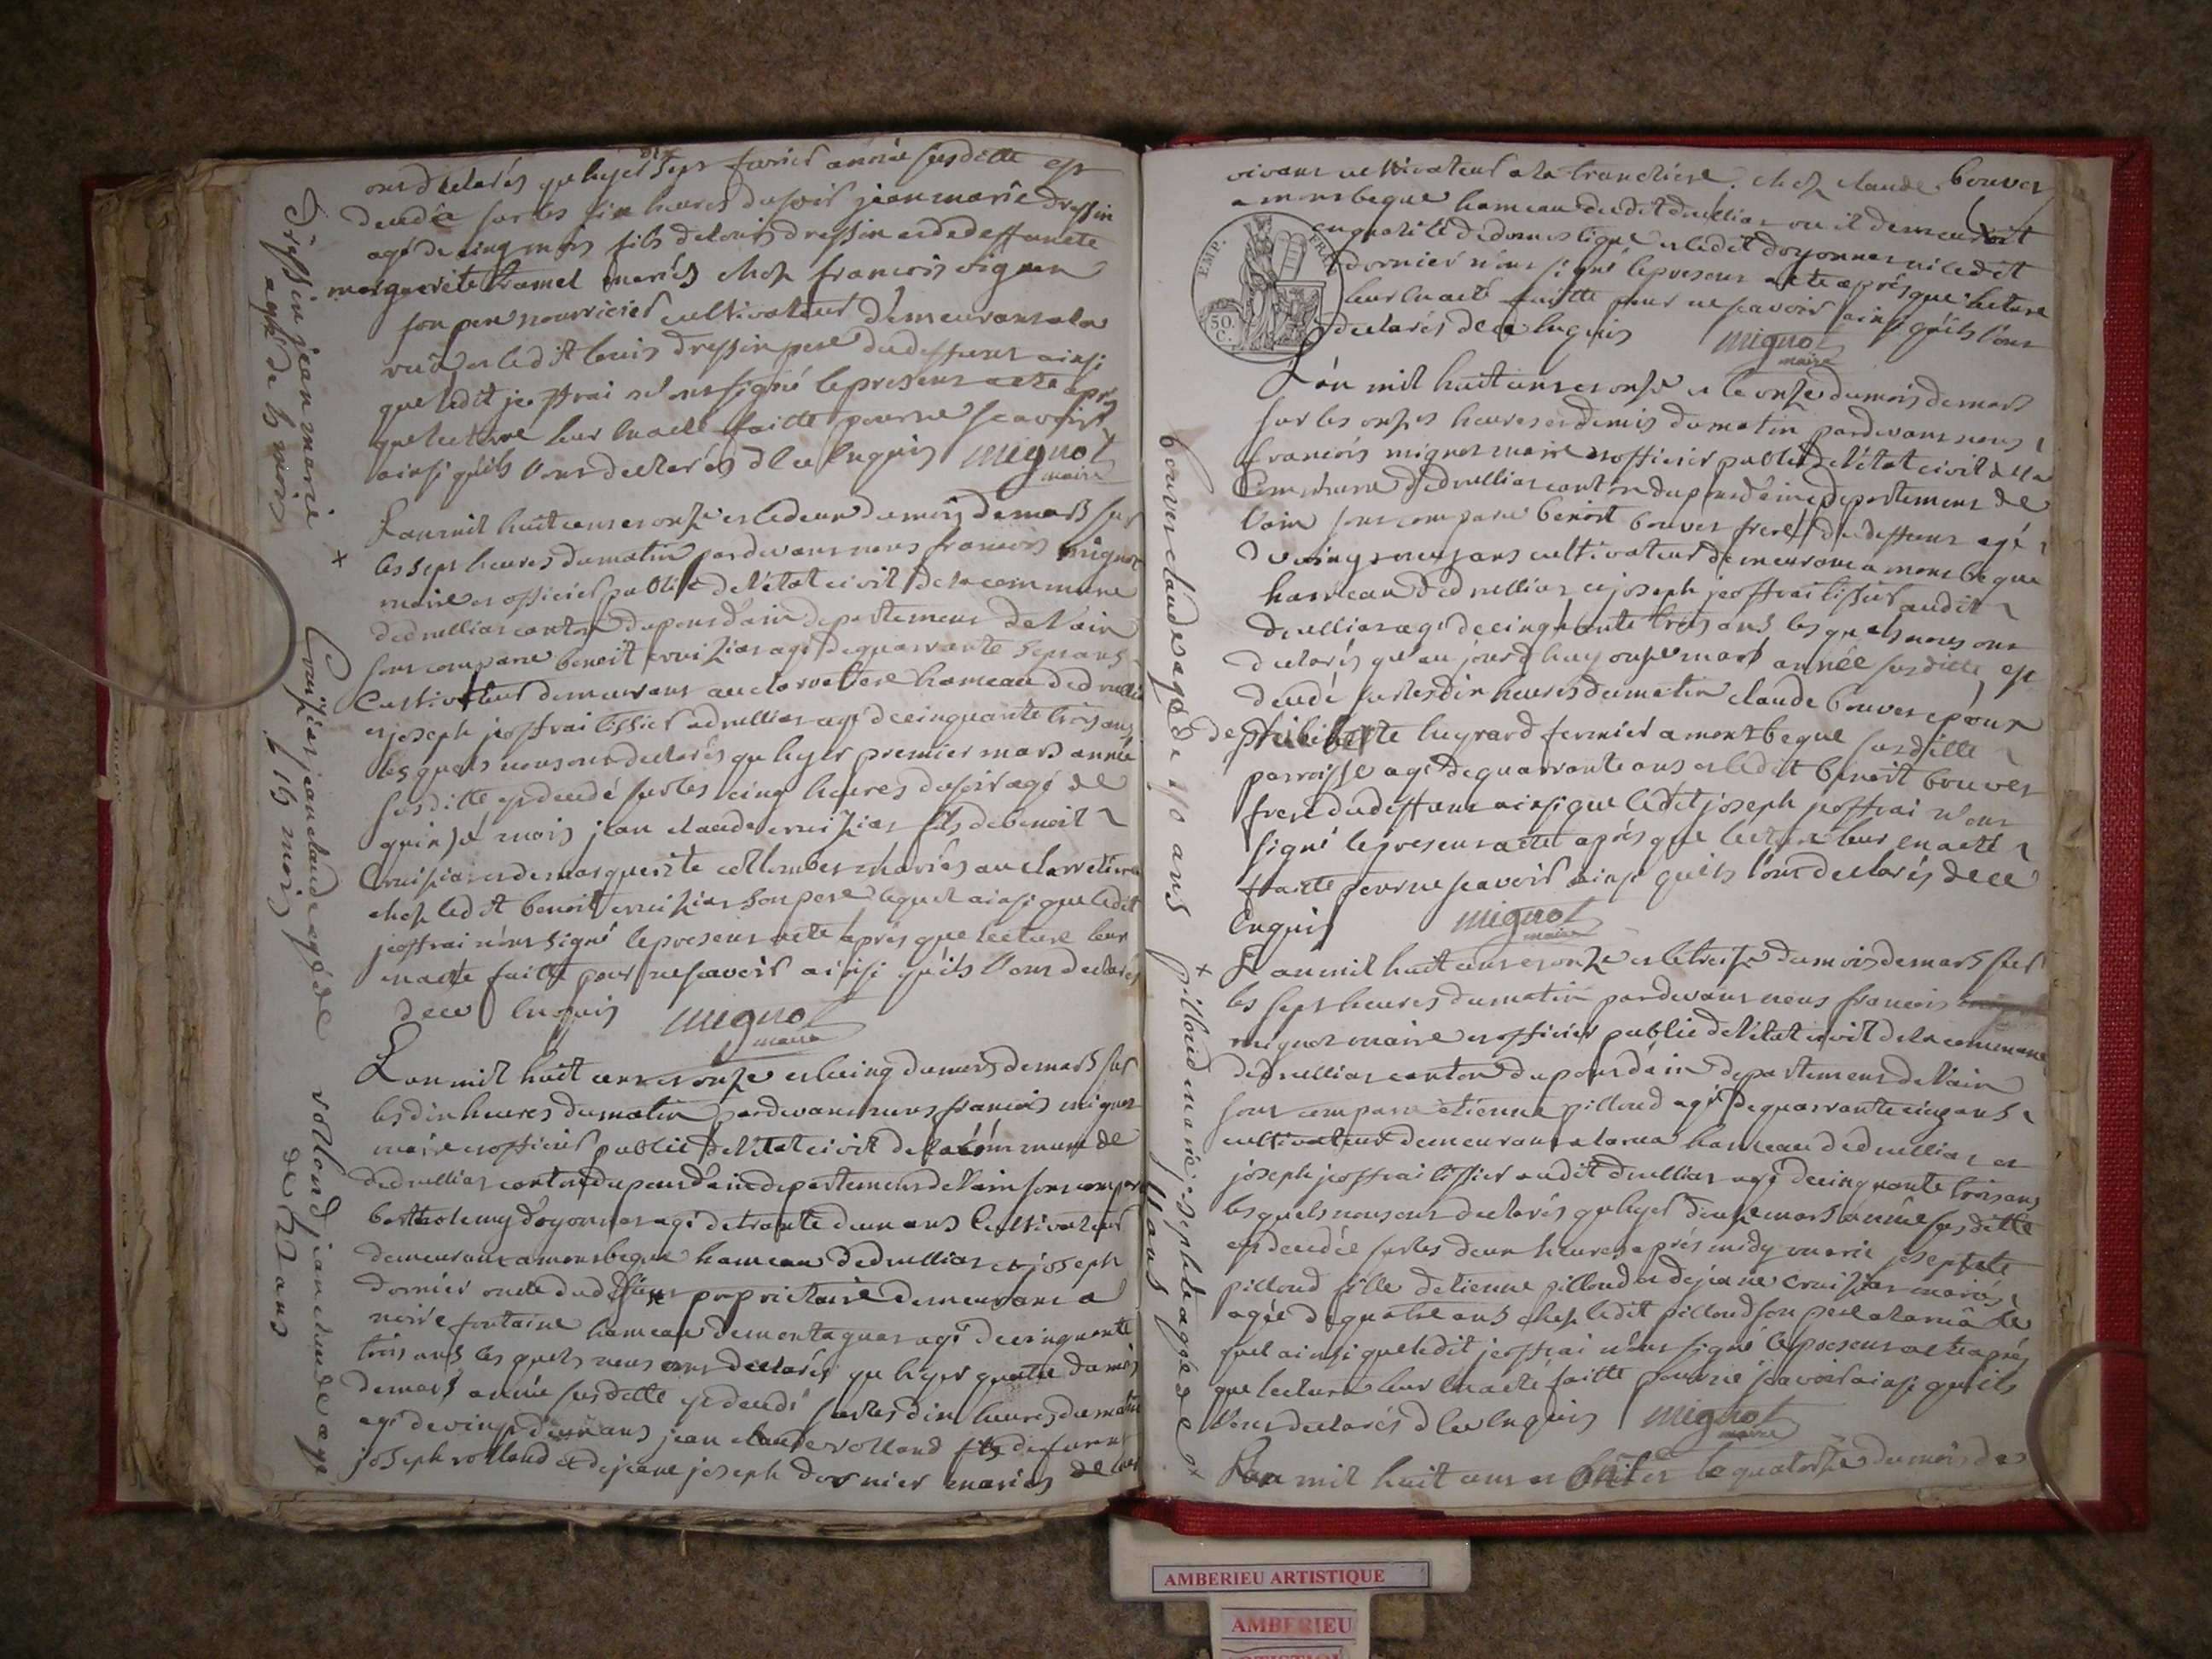 ont déclarés qu'hyer dix sept fevrier année susditte est
decudée sur les six heures du soir jean marie dressin
agé de cinq mois fils de louis dressin et de deffuncte
marguerite hamel mariés chez francois vignon
son pere nourricier cultivateur demeurant a la
et ledit louis dressin pere du deffunt ainsi
que ledit jeoffrai n'ont signé le present acte après
que lecture leur en a eté faitte pour ne scavoir
ainsi qu'ils l'ont declarés de ce enquis mignot
maire
dressin jean marie
agé de 5 mois
L'an mil huit cent et onze et le deux du mois de mars sur
les sept heures du matin pardevant nous francois mignot
maire et officier publie de l'état civil de la commune
de druillias canton du pont d'ain departement de l'ain
sont comparu benoit cruizias agé de quarrante sept ans
cultivateur demeurant au clarvetiere hameau de druillias
et joseph jeoffrai tissier a druillias agé de cinquante trois ans
les quels nous ont declarés qu'hyer premier mars année
susditte est decudé sur les cinq heures du soir agé de
quinsé mois jean claude cruizias fils de benoit
cruizias et de marguerite collomber mariés au clarvetiere
chez ledit benoit cruizias son pere lequel ainsi que ledit
jeoffrai n'ont signé le present acte après que lecture leur
en a eté faitte pour ne scavoir ainsi qu'ils l'ont declarés
de ce enquis mignot
maire
cruizias jean claude agé de
15 mois
L'an mil huit cent et onze et le cinq du mois de mars sur
les dix heures du matin pardevant nous francois mignot
maire et officier publie de l'état civit de la commune de
de druillias canton du pont d'ain departement de l'ain sont compar
barthelemy doyonnas agé de trante deux ans cultivateur
demeurant a montbegue hameau de druillias et joseph
dornier oncle du deffunt propriétaire demeurant a
noire fontaine hameau de montagnat agé de cinquante
trois ans les quels nous ont declarés qu'hyer quatre du mois
de mars année susditte est decudé sur les dix heures du matin
agé de vingt deux ans jean claude rolland fils de furent
joseph rolland et de jeane joseph dornier mariés de leur
rolland jean claude agé
de 22 ans
vivant cultivateur a la tranclière. chez claude bouvet
a montbegue hameau dudit druillias ou il demeuroit
en qualité de domestique et ledit doyonnas ni ledit
dornier n'ont signé le present acte après que lecture
leur en a eté faitte pour ne scavoir ainsi qu'ils l'ont
declarés de ce enquis mignot
maire
EMP. FRAN
50. C.
L'an mil huit cent et onze et le onze du mois de mars
sur les onzes heures et demis du matin pardevant nous
francois mignot maire et officier publie de l'état civil de la
commune de druillias canton du pont d'ain departement de
l'ain sont comparu benoit bouvet frere du deffunt agé
de vingt neuf ans cultivateur demeurant a montbegue
hameau de druillias et joseph jeoffrai tissier audit
druillias agé de cinquante trois ans les quels nous ont
declarés qu'au jourd'huy onze mars année susditte est
decudé sur les dix heures du matin claude bouvet epoux
de philiberte fermier a montbegue susditte
parroisse agé de quarrante ans et ledit benoit bouvet
frere du deffunt ainsi que ledit joseph jeoffrai n'ont
signé le present acte après que lecture leur en a eté
faitte pour ne scavoir ainsi qu'ils l'ont declarés de ce
enquis mignot
maire
bouvet claude agé de 40 ans
L'an mil huit cent et onze et le treize du mois de mars sur
les sept heures du matin pardevant nous francois
mignot maire et officier publie de l'état civit de la commune
de druillias canton du pont d'ain departement de l'ain
sont comparu etienne pilloud agé de quarrante cinq ans
cultivateur demeurant a larua hameau de druillias et
joseph jeoffrai tissier audit druillias agé de cinquante trois ans
les quels nous ont declarés qu'hyer douze mars année susditte
est decudée sur les deux heures après midy marie josephte
pilloud fille d'etienne pilloud et de jeane cruizias mariés
agée de quatre ans chez ledit pilloud son pere a larua le
quel ainsi que ledit jeoffrai n'ont signé le present acte après
que lecture leur en a eté faitte pour ne scavoir ainsi qu'ils
l'ont declarés de ce enquis mignot
maire
pilloud marie josephte agée de
4 ans
L'an mil huit cent et onze et le quatorze du mois de
AMBERIEU ARTISTIQUE
AMBERIEU